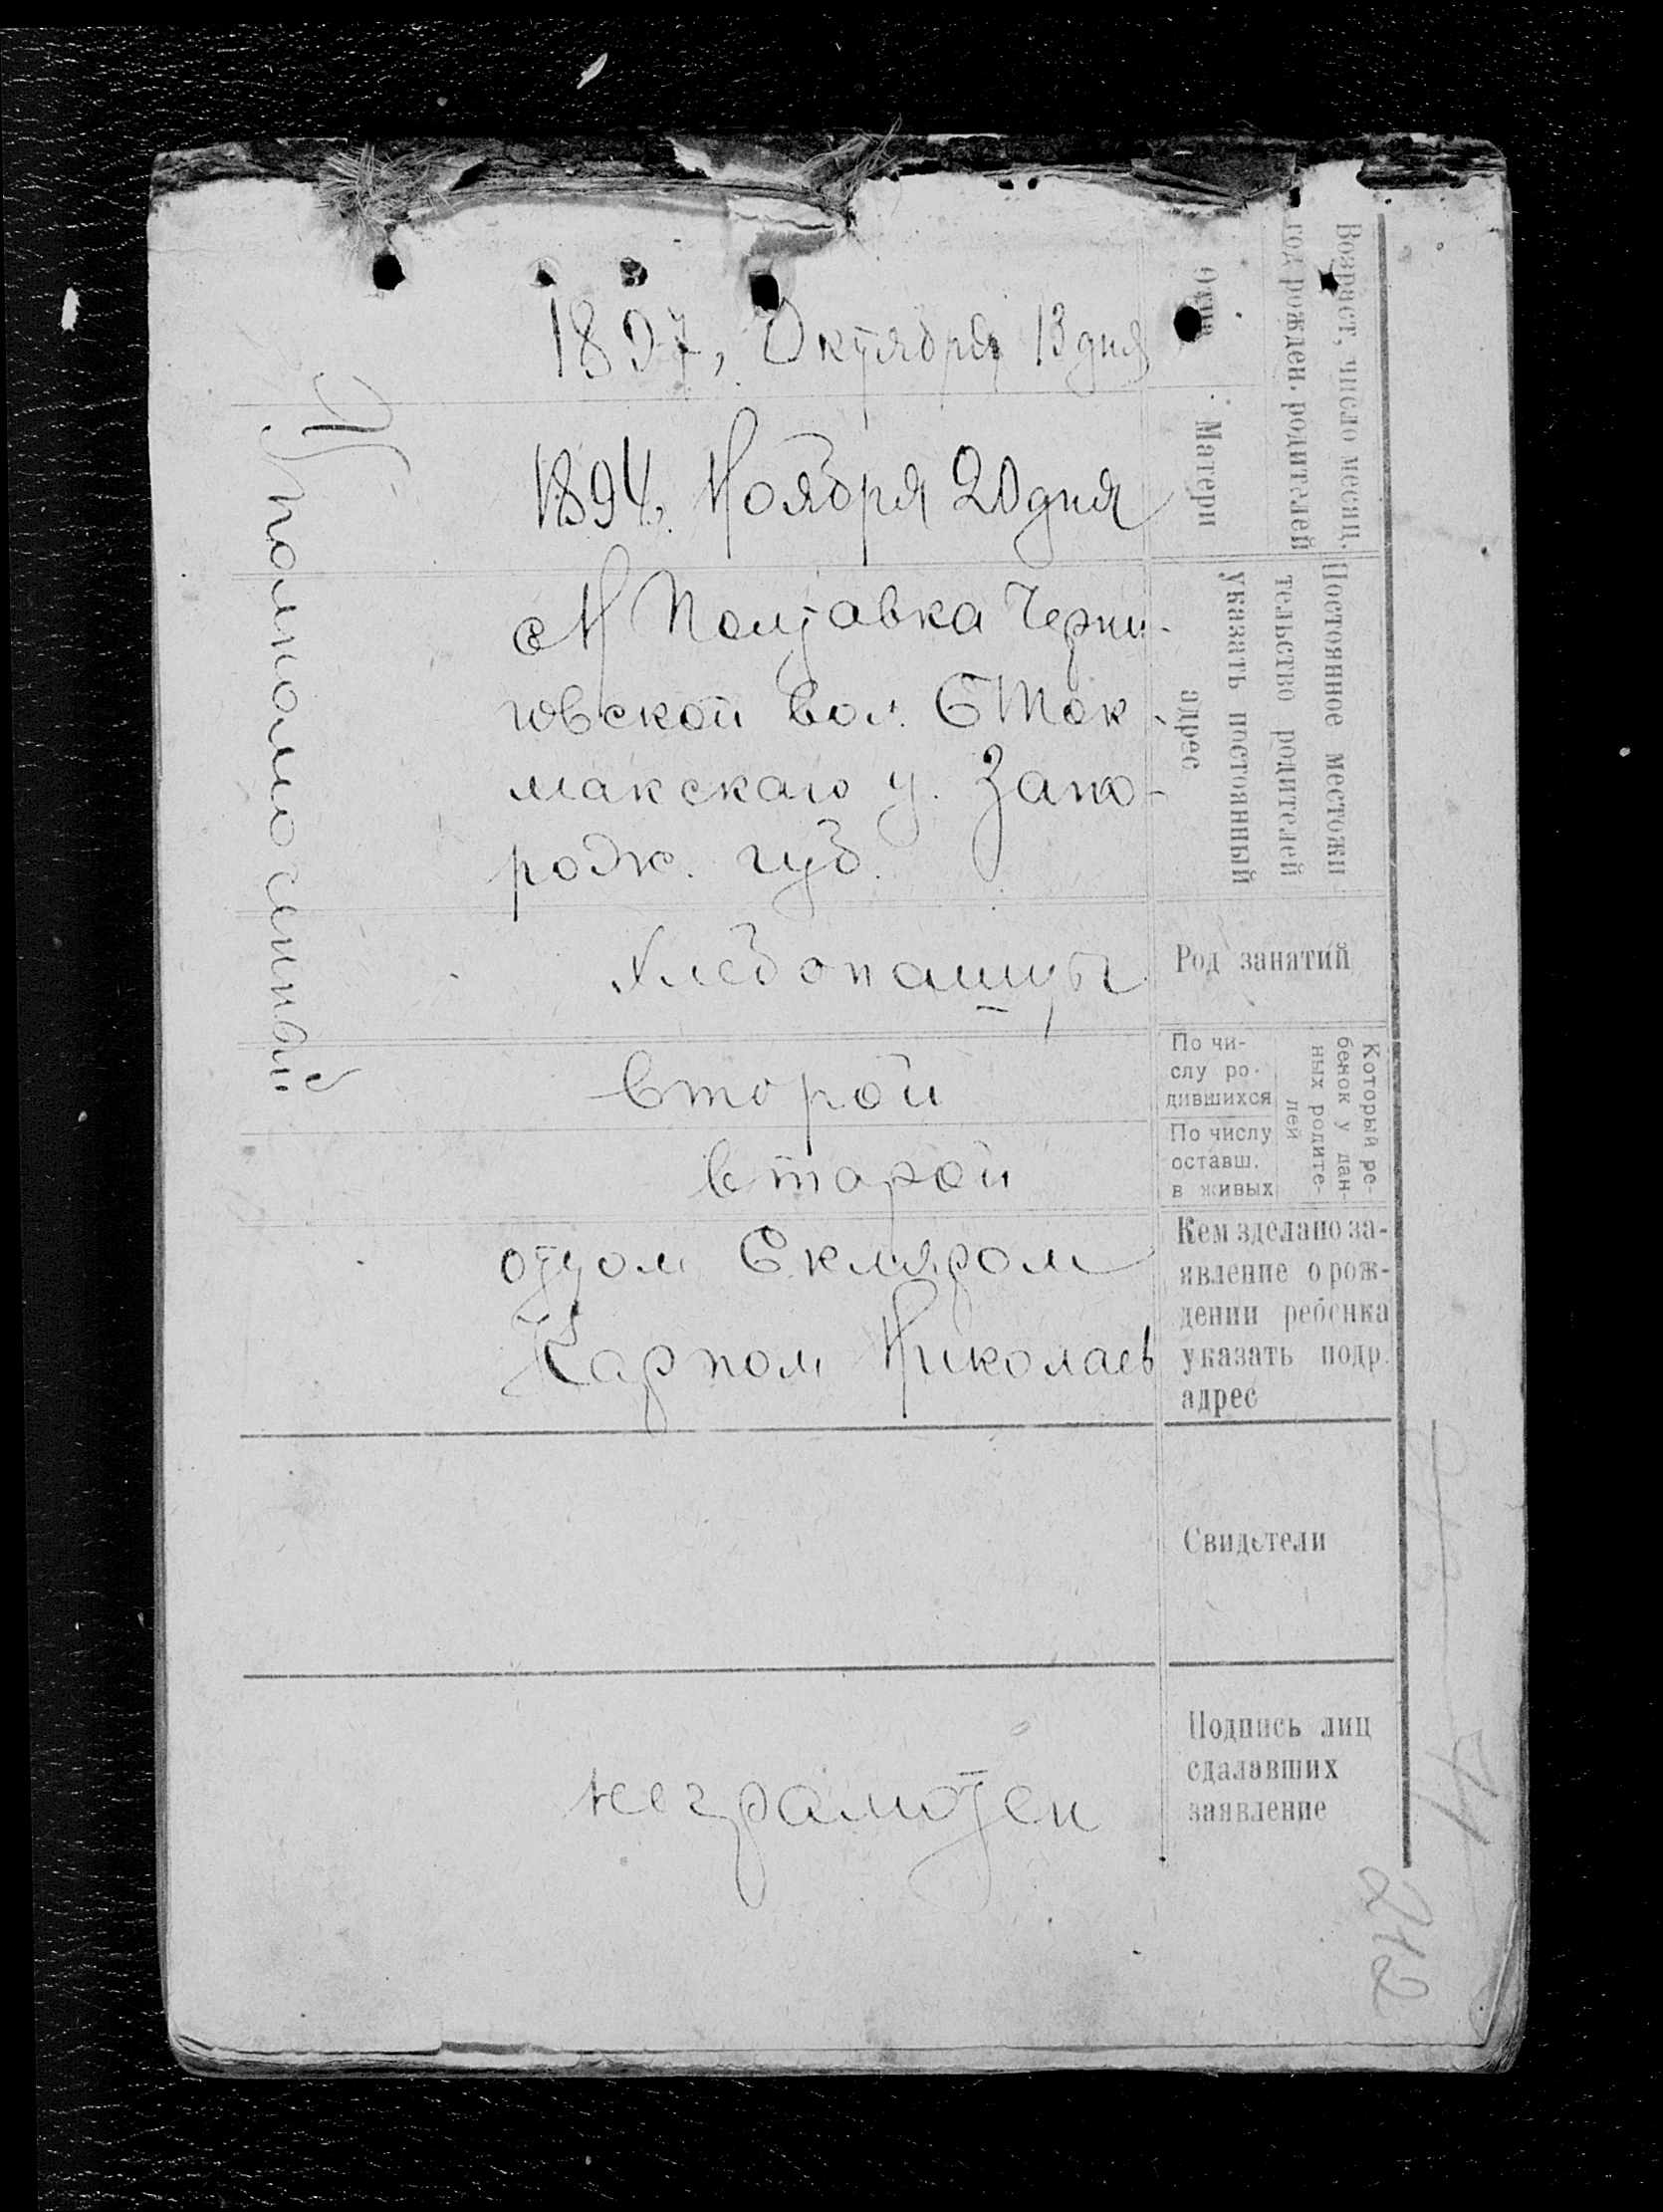 Возраст, число месяц,
год рожден. родителей
Отца
1897, Октября 13 дня
Матери
1894, Ноября 20 дня
Постоянное местожи
тельство родителей
указать постоянный
адрес
с Н Полтавка Черни-
говской вол. Б Ток-
макскаго у. Запо-
рож. губ.
Род занятий
Хлебопашцы
Который ре-
бенок у дан-
ных родите-
лей
По чи-
слу ро-
дившихся
Второй
По числу
оставш.
в живых
второй
Кем зделано за-
явление о рож-
дении ребенка
указать подр.
адрес
отцом Скляром
Карпом Николаев
Свидетели
Подпись лиц
сдалавших
заявление
неграмотен
212